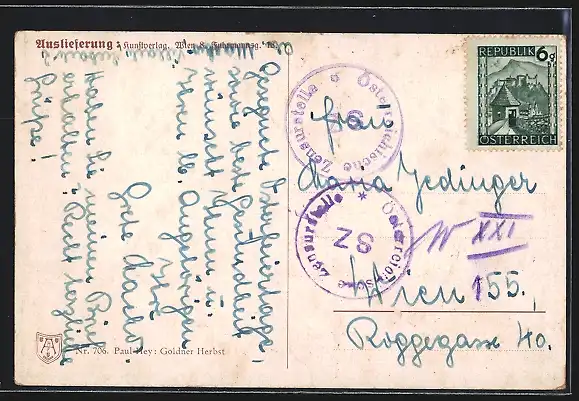 Auslieferung: Kunstverlag, Wien 8, Fuhrmannsg.
REPUBLIK 6g
ÖSTERREICH
Österreichische Zensurstelle
Österreichische Zensurstelle
SZ
Frau
Maria Jedinger
W XXI
Wien 155,
Roggegasse 40.
Gesegnete Osterfeiertage,
sowie beste Gesundheit
wünscht Ihnen u.
Ihren lb. Angehörigen
Ihre
Grete
Haben Sie meinen Brief
erhalten?
Grüße!
Nr. 706. Paul Hey: Goldner Herbst